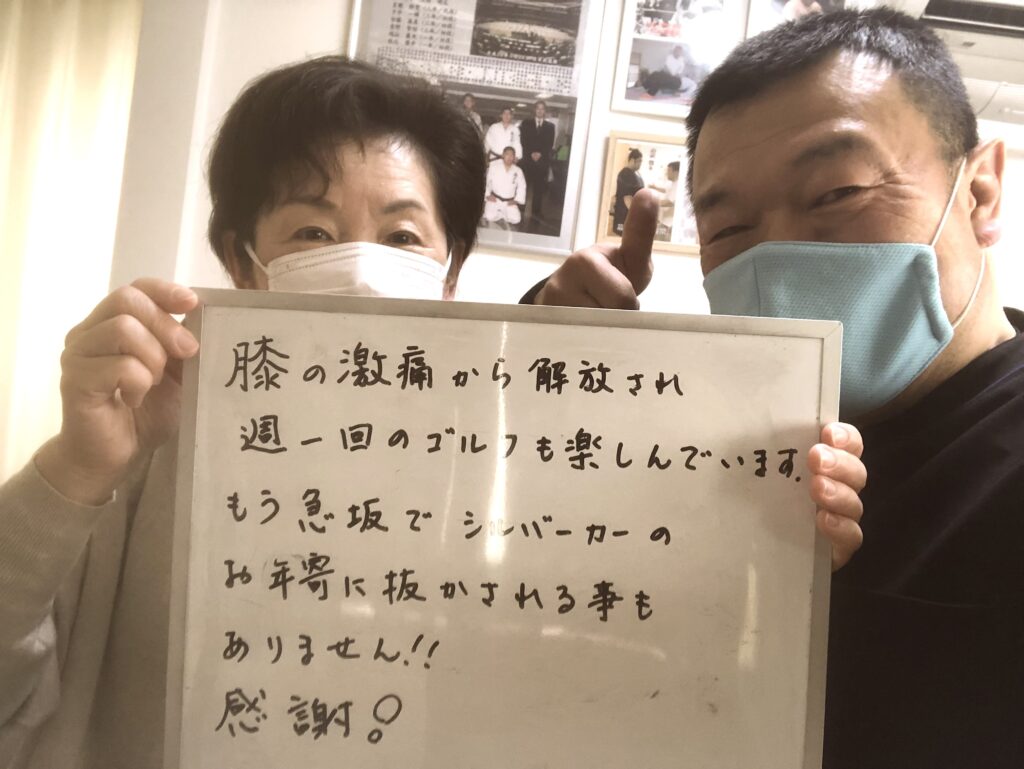 膝の激痛から解放され
週一回のゴルフも楽しんでいます.
もう急坂でシルバーカーの
お年寄に抜かされる事も
ありません!!
感謝!